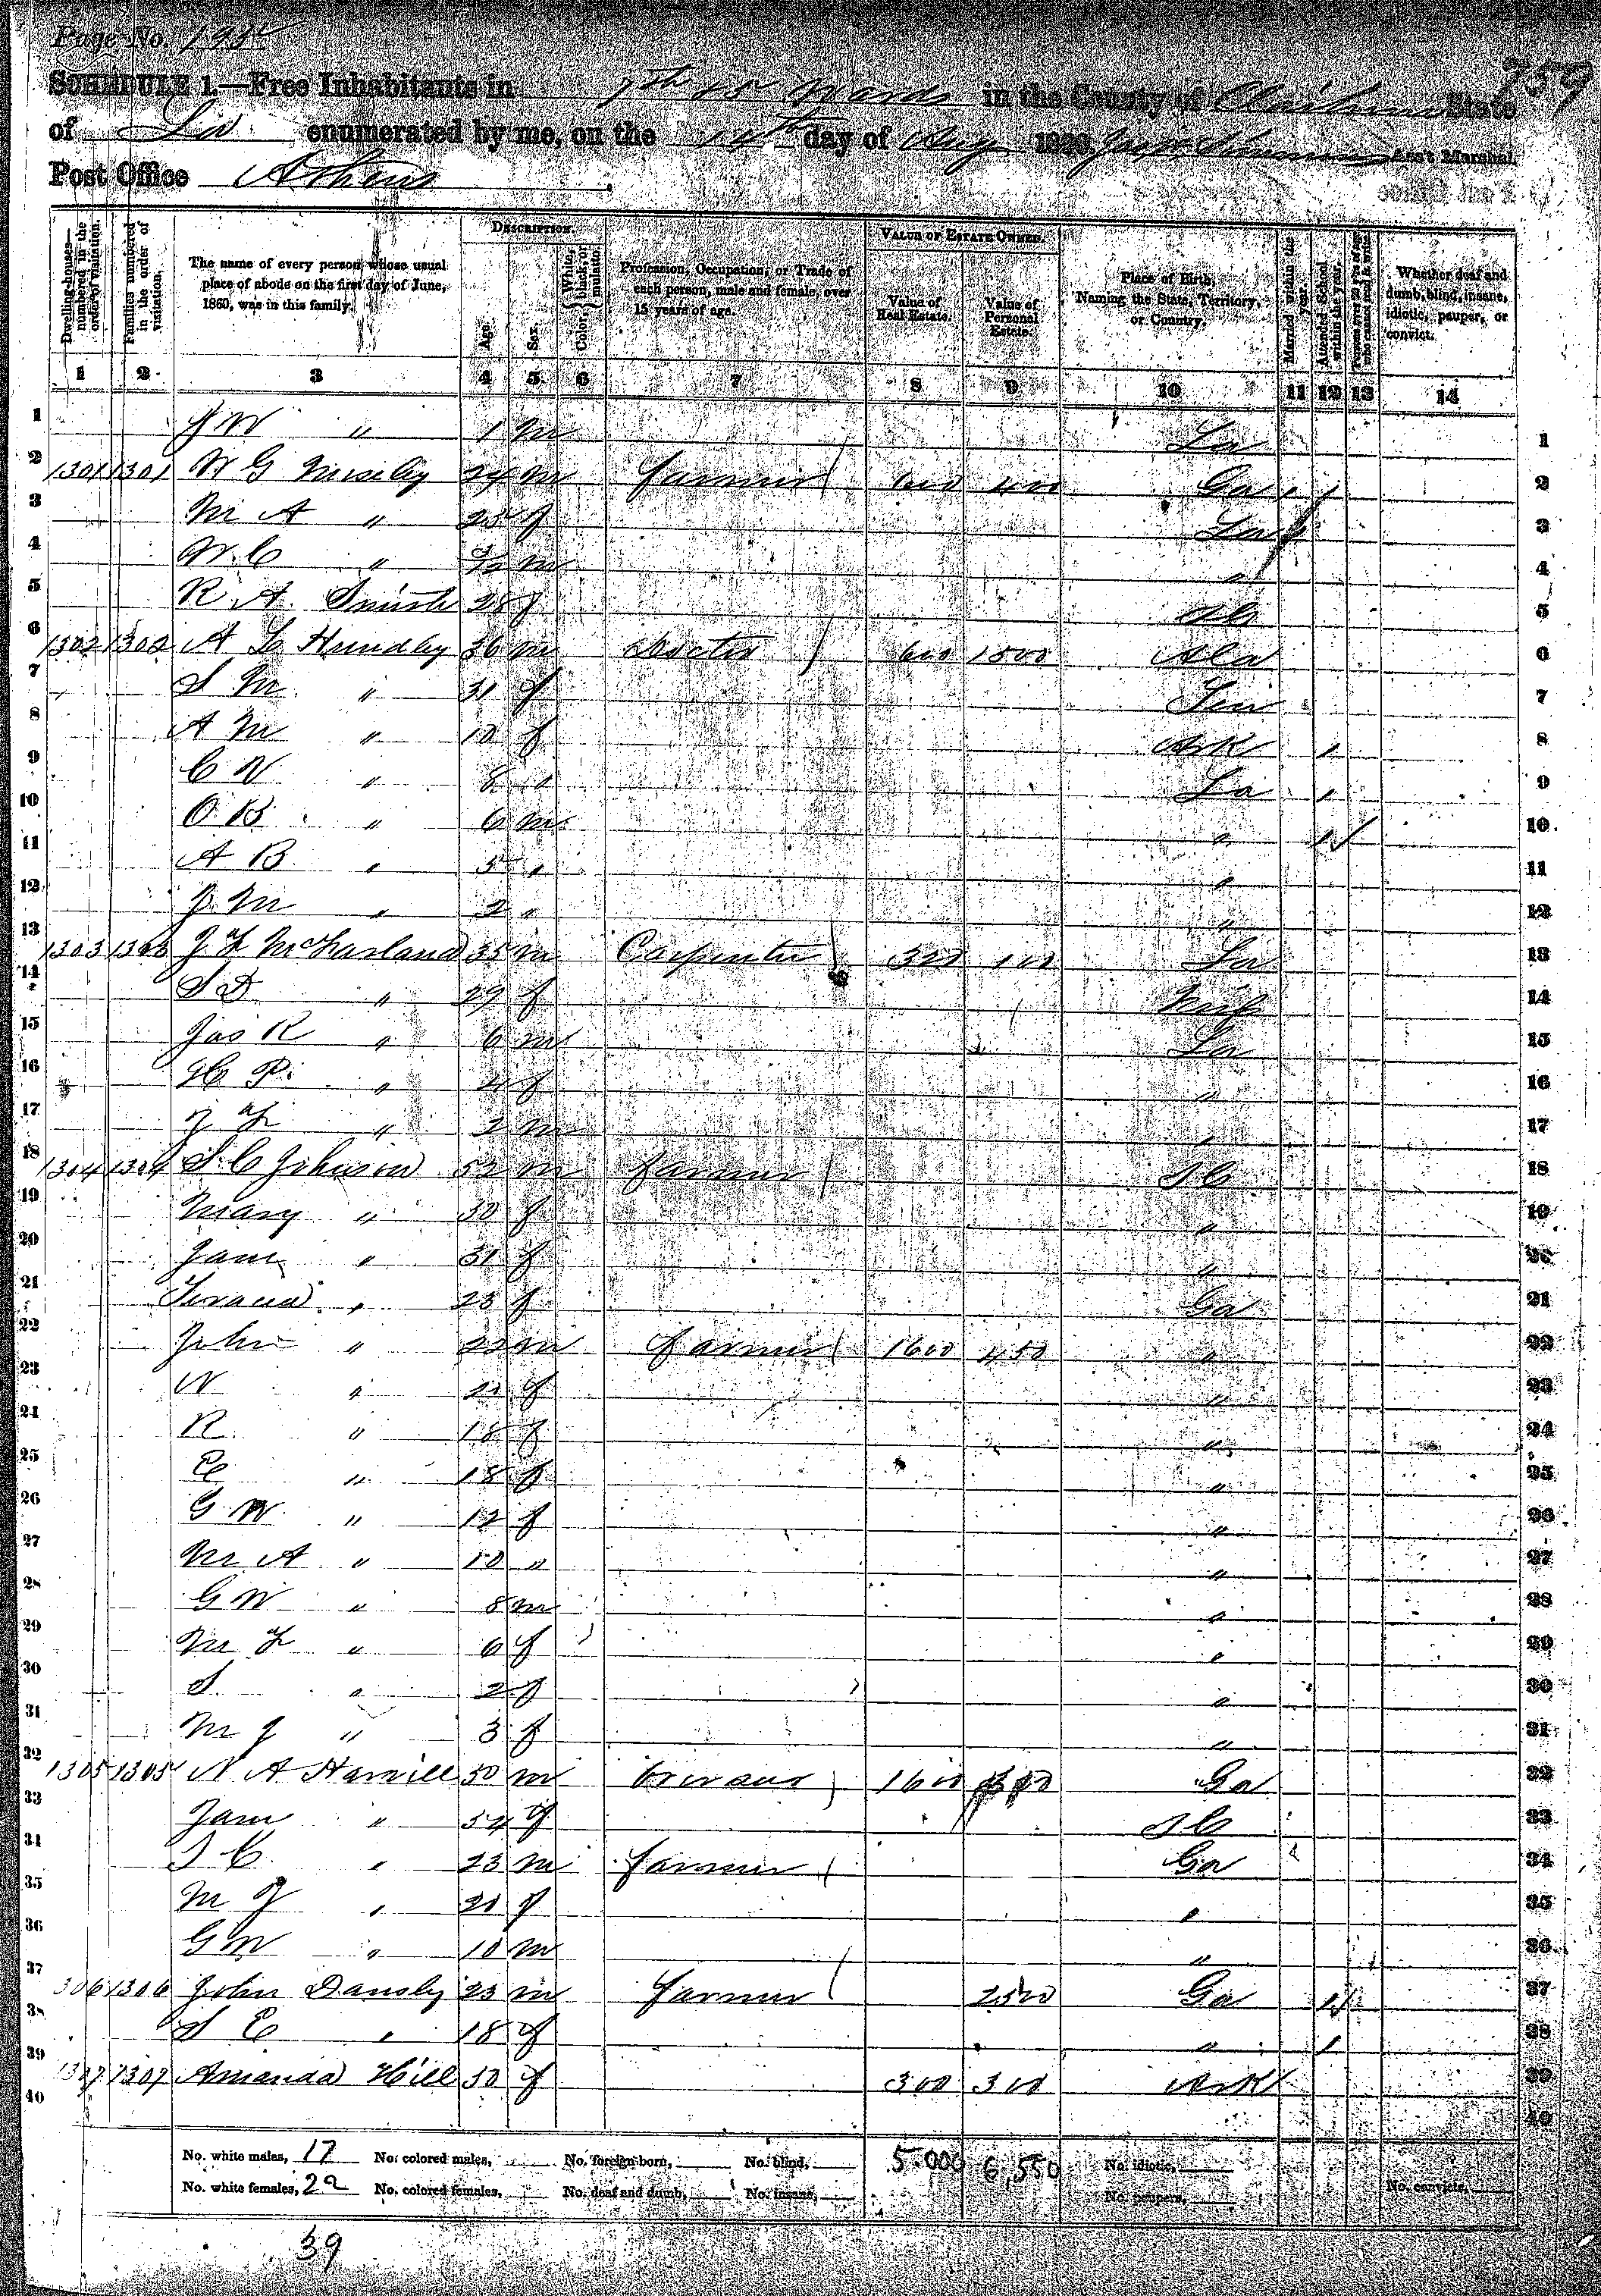 Page No. 195
359
SCHEDULE 1.—Free Inhabitants in 7th & 5 Wards in the County of Claiborne State
of La enumerated by me, on the 14th day of Aug 1860. Ass't Marshal.
Post Office Athens
Dwelling-houses—numbered in the order of visitation.
Families numbered in the order of visitation.
The name of every person whose usual place of abode on the first day of June, 1860, was in this family.
DESCRIPTION.
Age.
Sex.
Color, White, black, or mulatto.
Profession, Occupation, or Trade of each person, male and female, over 15 years of age.
VALUE OF ESTATE OWNED.
Value of Real Estate.
Value of Personal Estate.
Place of Birth, Naming the State, Territory, or Country.
Married within the year.
Attended School within the year.
Persons over 20 y'rs of age who cannot read & write.
Whether deaf and dumb, blind, insane, idiotic, pauper, or convict.
1 2 3 4 5 6 7 8 9 10 11 12 13 14
1 J W " 1 m La 1
2 1301 1301 W G 24 m farmer 600 400 Ga 2
3 M A " 25 f La 3
4 W. C " m " 4
5 R. A. Smith 28 f 5
6 1302 1302 A L Hundley 36 m Doctor 600 1500 Ala 6
7 S M " 31 f Ten 7
8 A M " 10 f Ark 8
9 C W " 8 " La 9
10 O. B " 6 m " 10
11 A B " 5 " " 11
12 J. M " 2 " " 12
13 1303 1303 J F McFarland 35 m Carpenter 300 100 La 13
14 S D " 29 f Miss 14
15 Jas R " 6 m La 15
16 H P. " 4 f " 16
17 J F " 2 m " 17
18 1304 1304 S. C Johnson 52 m farmer S C 18
19 Mary " 50 f " 19
20 Jane " 31 f " 20
21 " 25 f Ga 21
22 John " 22 m farmer 1600 450 " 22
23 N " 21 f " 23
24 R. " 18 f " 24
25 E " 15 f " 25
26 G W " 12 f " 26
27 M A " 10 " " 27
28 G W " 8 m " 28
29 M F " 6 f " 29
30 S " 2 f " 30
31 M J " 3 f " 31
32 1305 1305 N A 50 m 1600 Ga 32
33 Jane " 54 f S C 33
34 S C " 23 m farmer Ga 34
35 M J " 21 f " 35
36 G W " 10 m " 36
37 306 1306 John Dansby 23 m farmer 2500 Ga 37
38 S E " 18 f " 38
39 1307 1307 Amanda Hill 50 f 300 300 Ark 39
40 40
No. white males, 17 No. colored males, No. foreign born, No. blind, 5.000 6,550 No. idiotic,
No. white females, 22 No. colored females, No. deaf and dumb, No. insane, No. paupers, No. convicts,
39